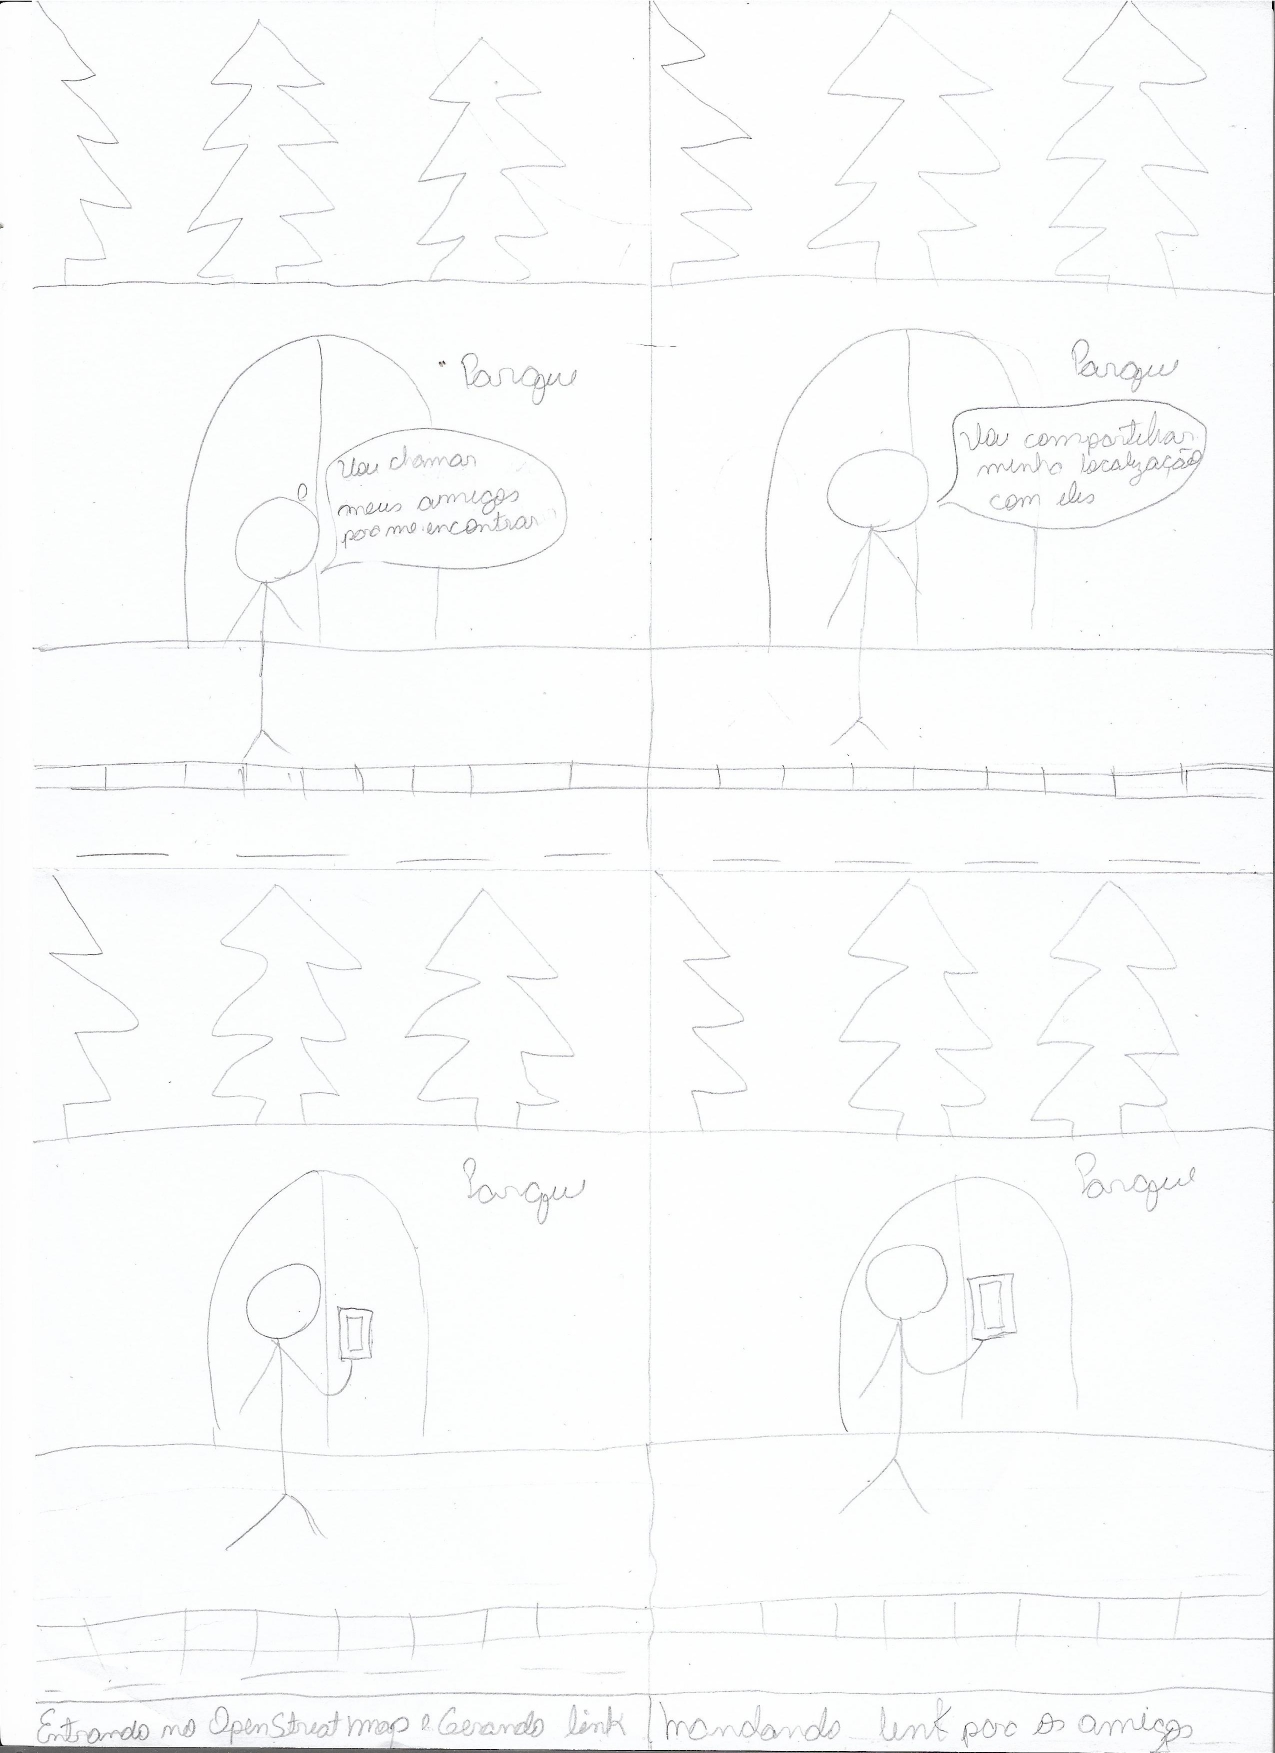 Parque
Vou chamar
meus amigos
para me encontrar
Parque
Vou compartilhar
minha localização
com eles
Parque
Parque
Entrando no OpenStreatmap e Gerando link
Mandando link para os amigos